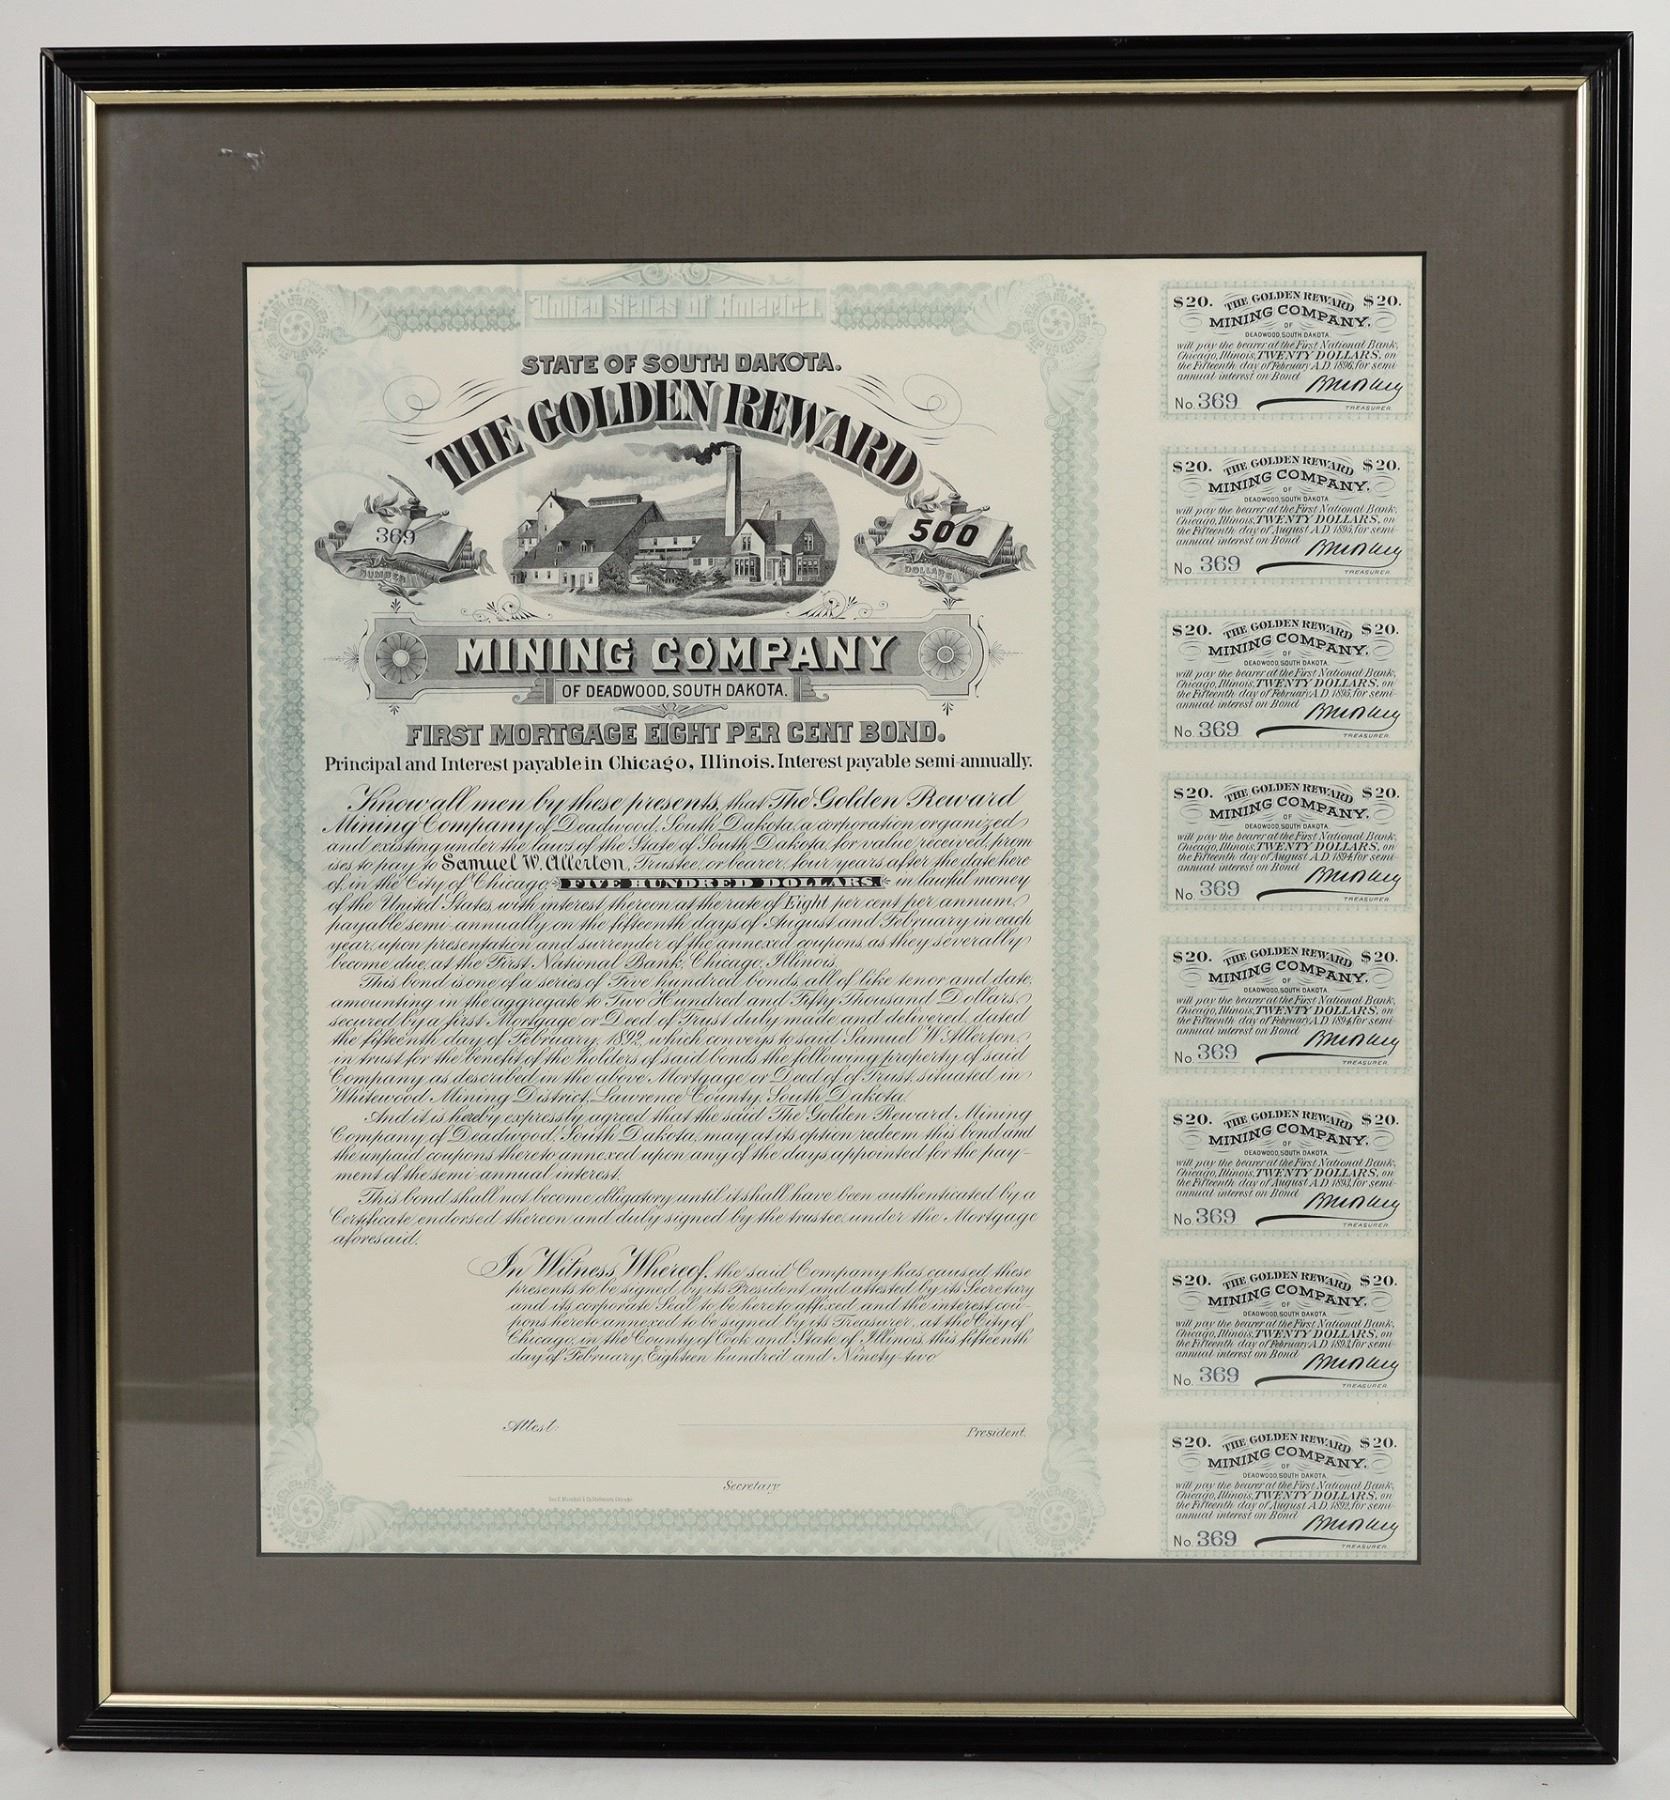 United States of America.
STATE OF SOUTH DAKOTA.
THE GOLDEN REWARD
369
NUMBER
500
DOLLARS
MINING COMPANY
OF DEADWOOD, SOUTH DAKOTA.
FIRST MORTGAGE EIGHT PER CENT BOND.
Principal and Interest payable in Chicago, Illinois. Interest payable semi-annually.
Know all men by these presents, that The Golden Reward
Mining Company of Deadwood, South Dakota, a corporation organized
and existing under the laws of the State of South Dakota, for value received, prom
ises to pay to Samuel W. Allerton, Trustee, or bearer, four years after the date here
of, in the City of Chicago, FIVE HUNDRED DOLLARS, in lawful money
of the United States, with interest thereon at the rate of Eight per cent per annum,
payable semi-annually on the fifteenth days of August and February in each
year, upon presentation and surrender of the annexed coupons, as they severally
become due, at the First National Bank, Chicago, Illinois.
This bond is one of a series of Five hundred bonds, all of like tenor and date,
amounting in the aggregate to Two Hundred and Fifty Thousand Dollars,
secured by a first Mortgage or Deed of Trust duly made and delivered, dated
the fifteenth day of February, 1892, which conveys to said Samuel W. Allerton,
in trust for the benefit of the holders of said bonds the following property of said
Company as described in the above Mortgage or Deed of of Trust, situated in
Whitewood Mining District, Lawrence County, South Dakota.
And it is hereby expressly agreed that the said The Golden Reward Mining
Company of Deadwood, South Dakota, may at its option redeem this bond and
the unpaid coupons thereto annexed upon any of the days appointed for the pay-
ment of the semi-annual interest.
This bond shall not become obligatory until it shall have been authenticated by a
Certificate endorsed thereon and duly signed by the trustee under the Mortgage
aforesaid.
In Witness Whereof, the said Company has caused these
presents to be signed by its President and attested by its Secretary
and its corporate Seal to be hereto affixed and the interest cou-
pons hereto annexed to be signed by its Treasurer, at the City of
Chicago, in the County of Cook and State of Illinois, this fifteenth
day of February, Eighteen hundred and Ninety-two
Attest:
President.
Secretary.
$20. THE GOLDEN REWARD $20.
MINING COMPANY,
OF
DEADWOOD, SOUTH DAKOTA
will pay the bearer at the First National Bank,
Chicago, Illinois, TWENTY DOLLARS, on
the Fifteenth day of February A.D. 1896, for semi-
annual interest on Bond
No. 369
TREASURER.
$20. THE GOLDEN REWARD $20.
MINING COMPANY,
OF
DEADWOOD, SOUTH DAKOTA
will pay the bearer at the First National Bank,
Chicago, Illinois, TWENTY DOLLARS, on
the Fifteenth day of August A.D. 1895, for semi-
annual interest on Bond
No. 369
TREASURER.
$20. THE GOLDEN REWARD $20.
MINING COMPANY,
OF
DEADWOOD, SOUTH DAKOTA
will pay the bearer at the First National Bank,
Chicago, Illinois, TWENTY DOLLARS, on
the Fifteenth day of February A.D. 1895, for semi-
annual interest on Bond
No. 369
TREASURER.
$20. THE GOLDEN REWARD $20.
MINING COMPANY,
OF
DEADWOOD, SOUTH DAKOTA
will pay the bearer at the First National Bank,
Chicago, Illinois, TWENTY DOLLARS, on
the Fifteenth day of August A.D. 1894, for semi-
annual interest on Bond
No. 369
TREASURER.
$20. THE GOLDEN REWARD $20.
MINING COMPANY,
OF
DEADWOOD, SOUTH DAKOTA
will pay the bearer at the First National Bank,
Chicago, Illinois, TWENTY DOLLARS, on
the Fifteenth day of February A.D. 1894, for semi-
annual interest on Bond
No. 369
TREASURER.
$20. THE GOLDEN REWARD $20.
MINING COMPANY,
OF
DEADWOOD, SOUTH DAKOTA
will pay the bearer at the First National Bank,
Chicago, Illinois, TWENTY DOLLARS, on
the Fifteenth day of August A.D. 1893, for semi-
annual interest on Bond
No. 369
TREASURER.
$20. THE GOLDEN REWARD $20.
MINING COMPANY,
OF
DEADWOOD, SOUTH DAKOTA
will pay the bearer at the First National Bank,
Chicago, Illinois, TWENTY DOLLARS, on
the Fifteenth day of February A.D. 1893, for semi-
annual interest on Bond
No. 369
TREASURER.
$20. THE GOLDEN REWARD $20.
MINING COMPANY,
OF
DEADWOOD, SOUTH DAKOTA
will pay the bearer at the First National Bank,
Chicago, Illinois, TWENTY DOLLARS, on
the Fifteenth day of August A.D. 1892, for semi-
annual interest on Bond
No. 369
TREASURER.